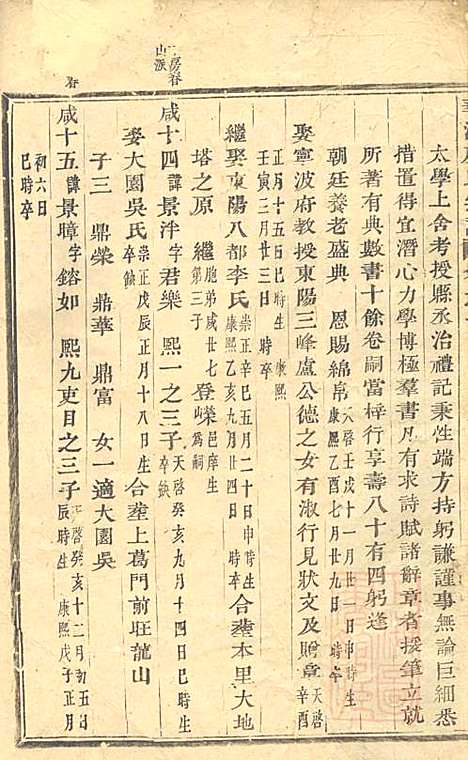 太學上舍考授縣丞治禮記秉性端方持躬謙謹事無巨細悉
措置得宜潛心力學博極羣書凡有求詩賦諸辭章者援筆立就
所著有典數書十餘卷嗣當梓行享壽八十有四躬逢
朝廷養老盛典 恩賜綿帛 天啓壬戌十一月廿一日申時生 康熙乙酉七月廿九日 時卒
娶寧波府教授東陽三峰盧公德之女有淑行見狀文及贈章 天啓辛酉
正月十五日巳時生 康熙
壬寅三月廿三日 時卒
繼娶東陽八都李氏 崇正辛巳五月二十日申時生 康熙乙亥九月廿四日 時卒 合塟本里大地
塔之原 繼 胞弟咸廿七第三子 登榮 邑庠生為祠
三房春山派
咸十四 諱景泮 字君樂 熙一之三子 天啓癸亥九月十四日巳時生 卒缺
娶大園吳氏 崇正戊辰正月十八日生 卒缺 合塟上葛門前旺龍山
子三 鼎榮 鼎華 鼎富 女一適大園吳
春
咸十五 諱景暲 字鎔如 熙九吏目之三子 天啓癸亥十二月初五日辰時生 康熙戊子正月
初六日
巳時卒